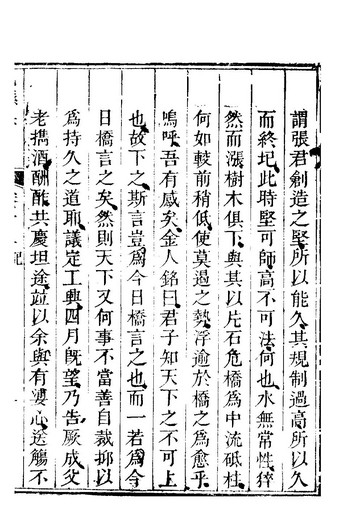 謂張君創造之堅所以能久其規制過高所以久
而終圮此時堅可師高不可法何也水無常性猝
然而漲樹木俱下與其以片石危橋為中流砥柱
何如較前稍低使莫過之熱浮逾於橋之為愈乎
嗚呼吾有感矣金人銘曰君子知天下之不可上
也故下之斯言豈為今日橋言之也而一若為今
日橋言之矣然則天下又何事不當善自裁抑以
為持久之道耶議定工興四月旣望乃告厥成父
老攜酒酬酢共慶坦途並以余與有襄心送觴不
記